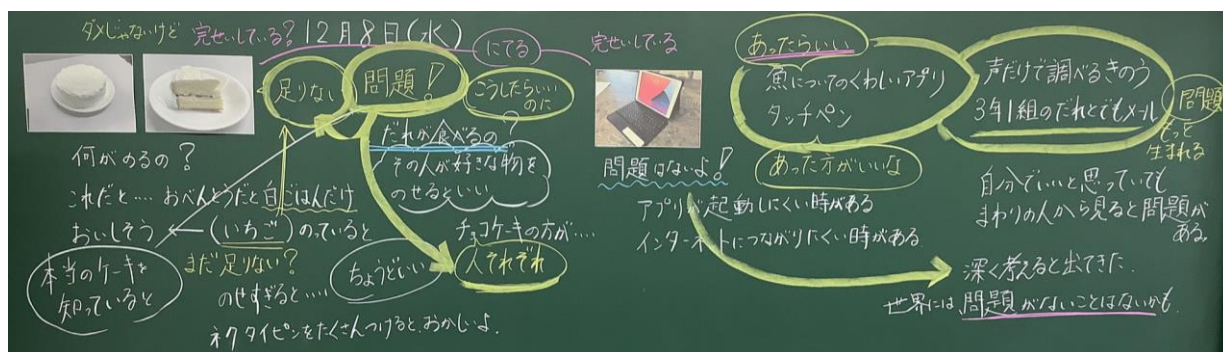 ダメじゃないけど
完せいしている?
12月8日(水)
にてる
足りない
問題!
こうしたらいい
のに
何がのるの?
これだと…… おべんとうだと白ごはんだけ
おいしそう ← (いちご)のっていると
本当のケーキを
知っていると
まだ足りない?
のせすぎると……
ちょうどいい
ネクタイピンをたくさんつけると、おかしいよ.
だれが食べるの?
その人が好きな物を
のせるといい
チョコケーキの方が……
人それぞれ
完せいしている
問題はないよ!
アプリが起動しにくい時がある
インターネットにつながりにくい時がある
あったらいい
魚についてのくわしいアプリ
タッチペン
あった方がいいな
声だけで調べるきのう
3年1組のだれとでもメール
問題
もっと
生まれる
自分でいいと思っていても
まわりの人から見ると問題が
ある。
深く考えると出てきた.
世界には問題がないことはないかも.